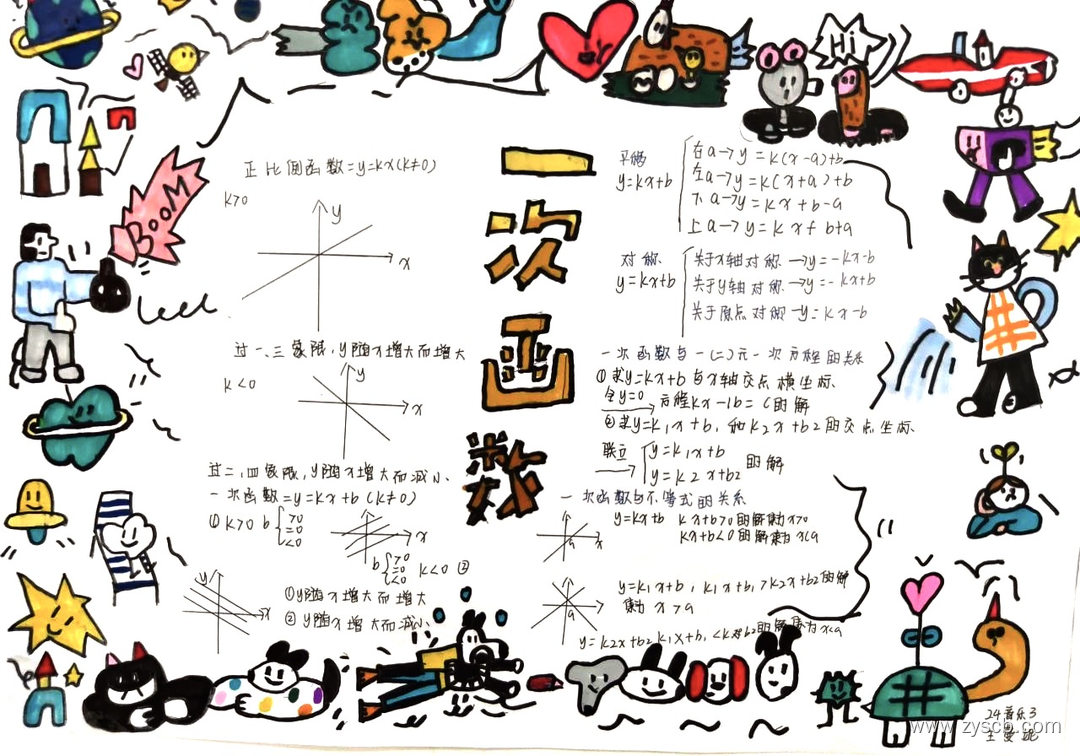 BOOM
Hi
一次函数
正比例函数=y=kx(k≠0)
k>0
y
x
过一、三象限,y随x增大而增大
k<0
y
x
过二、四象限,y随x增大而减小
一次函数=y=kx+b(k≠0)
①k>0 b{>0 =0 <0
x
b{>0 =0 <0 k<0 ②
y
x
①y随x增大而增大
②y随x增大而减小
平移
y=kx+b
右a→y=k(x-a)+b
左a→y=k(x+a)+b
下a→y=kx+b-a
上a→y=kx+b+a
对称
y=kx+b
关于x轴对称→y=-kx-b
关于y轴对称→y=-kx+b
关于原点对称→y=kx-b
一次函数与一(二)元一次方程的关系
①求y=kx+b与x轴交点横坐标
令y=0 方程kx-1b=0的解
②求y=k1x+b,和k2x+b2的交点坐标
联立{y=k1x+b
y=k2x+b2 的解
一次函数与不等式的关系
y=kx+b kx+b>0的解集x>0
kx+b<0的解集为x<a
a
x
y=k1x+b,k1x+b,>k2x+b2的解
集为x>a
a
x
y=k2x+b2 k1x+b,<k2x+b2的解集为x<a
24音乐3
www.zyscb.com